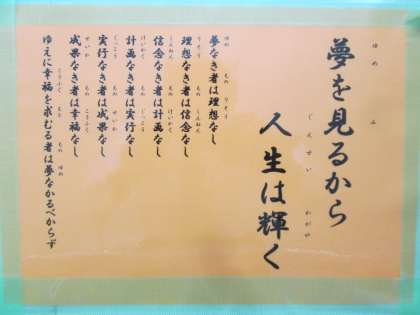 夢を見るから
人生は輝く
夢なき者は理想なし
理想なき者は信念なし
信念なき者は計画なし
計画なき者は実行なし
実行なき者は成果なし
成果なき者は幸福なし
ゆえに幸福を求むる者は夢なかるべからず